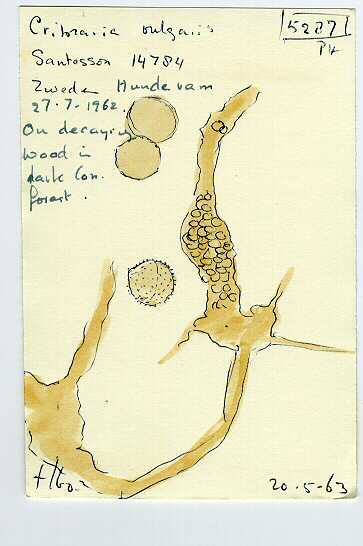 Cribraria vulgaris
5227
PH
Santesson 14784
Zweden Hundevam
27-7-1962.
On decaying
wood in
dark Con.
forest.
20.5-63